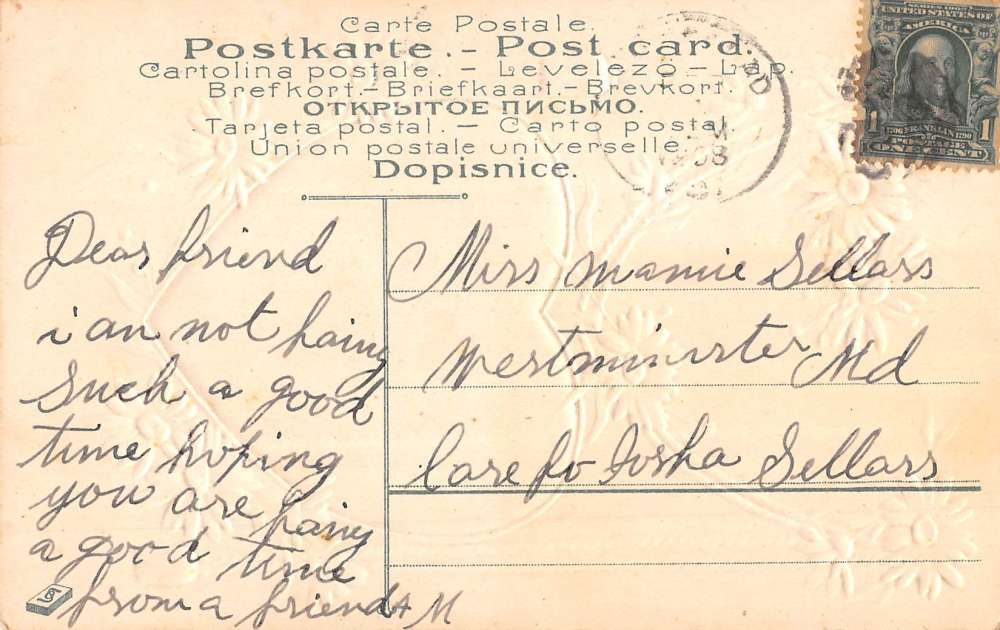 Carte Postale.
Postkarte. - Post card.
Cartolina postale. - Levelezö - Lap.
Brefkort. - Briefkaart. - Brevkort.
ОТКРЫТОЕ ПИСЬМО.
Tarjeta postal. - Carto postal.
Union postale universelle.
Dopisnice.
SERIES 1902
UNITED STATES OF
AMERICA
1706 FRANKLIN 1790
1 POSTAGE 1
ONE CENT
1908
Dear friend
i an not haing
Such a good
time hoping
you are haing
a good time
from a friend A M
Miss Mamie Sellars
Westminister Md
Care fo Sellars